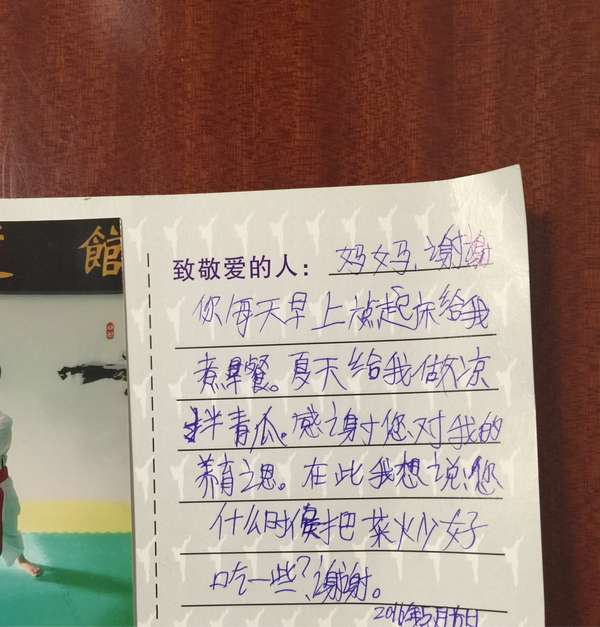 館
致敬爱的人：妈妈，谢谢
你每天早上起床给我
煮早餐。夏天给我做凉
拌青瓜。感谢您对我的
养育之恩。在此我想说：您
什么时候把菜炒好
吃一些？谢谢。
2016年5月